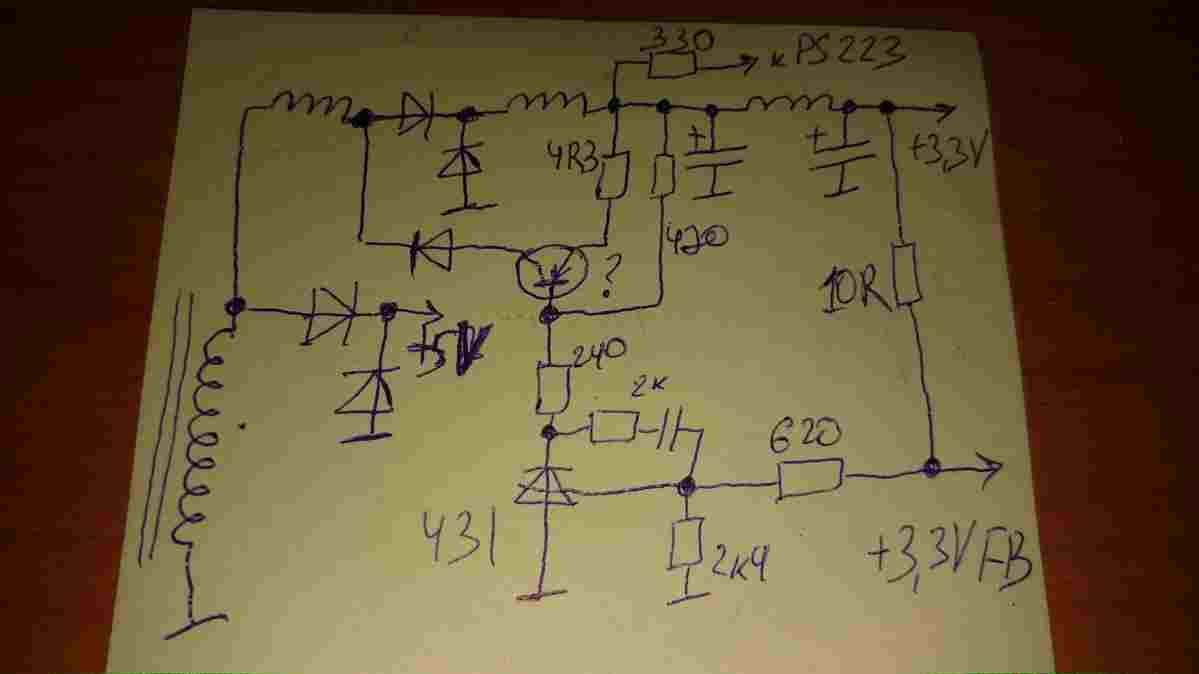 330
к PS223
4R3
+
+
+3,3V
420
?
10R
+5V
240
2к
620
431
2к4
+3,3V FB